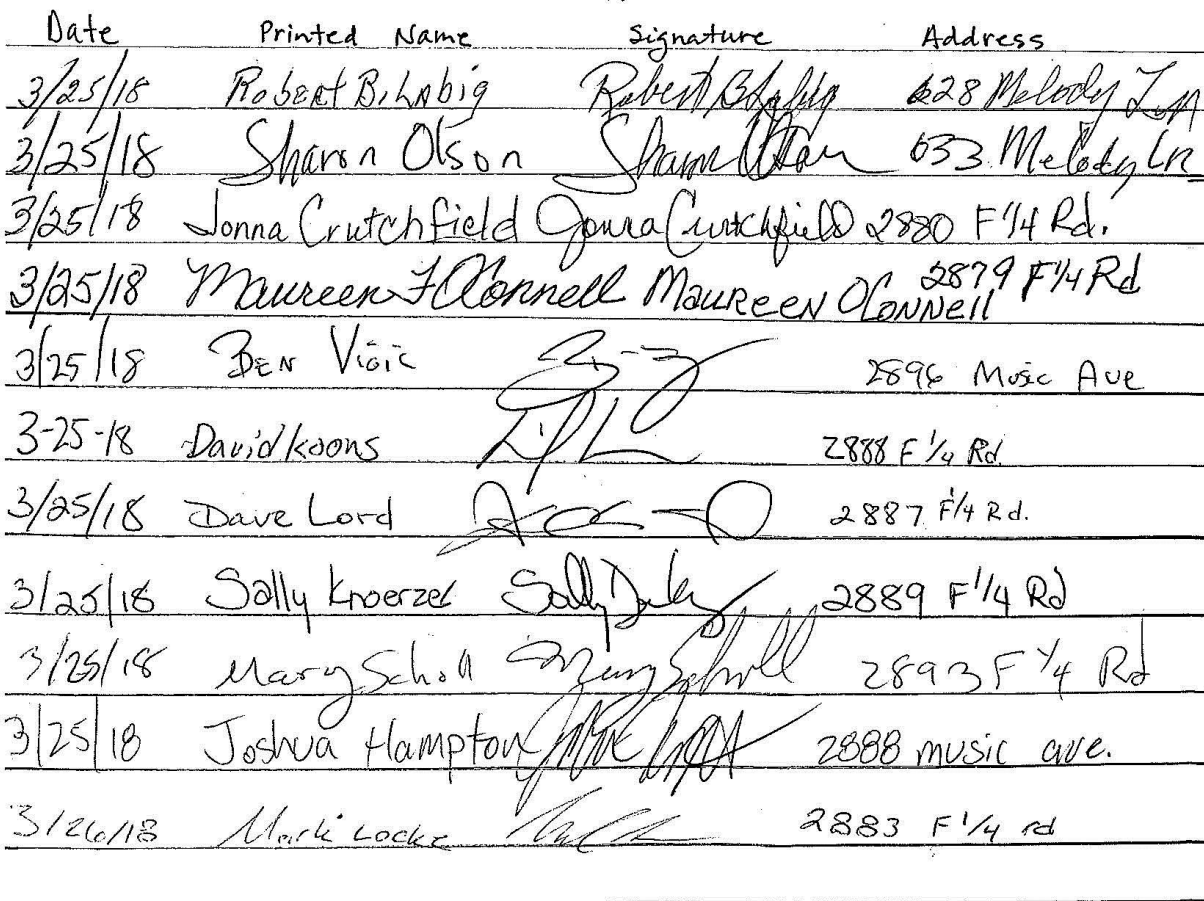 Date Printed Name Signature Address
3/25/18 Robert B. Labig Robert B Labig 628 Melody Ln
3/25/18 Sharon Olson Sharon Olson 633 Melody Ln
3/25/18 Jonna Crutchfield Jonna Crutchfield 2880 F 1/4 Rd.
3/25/18 Maureen F O'Connell MAUREEN O'CONNELL 2879 F 1/4 Rd
3/25/18 BEN Vigil 2896 Music Ave
3-25-18 David Koons 2888 F 1/4 Rd.
3/25/18 Dave Lord 2887 F 1/4 Rd.
3/25/18 Sally Knoerzer Sally 2889 F 1/4 Rd
3/25/18 Mary Scholl Mary Scholl 2893 F 1/4 Rd
3/25/18 Joshua Hampton 2888 music ave.
3/26/18 Mark Locke 2883 F 1/4 rd